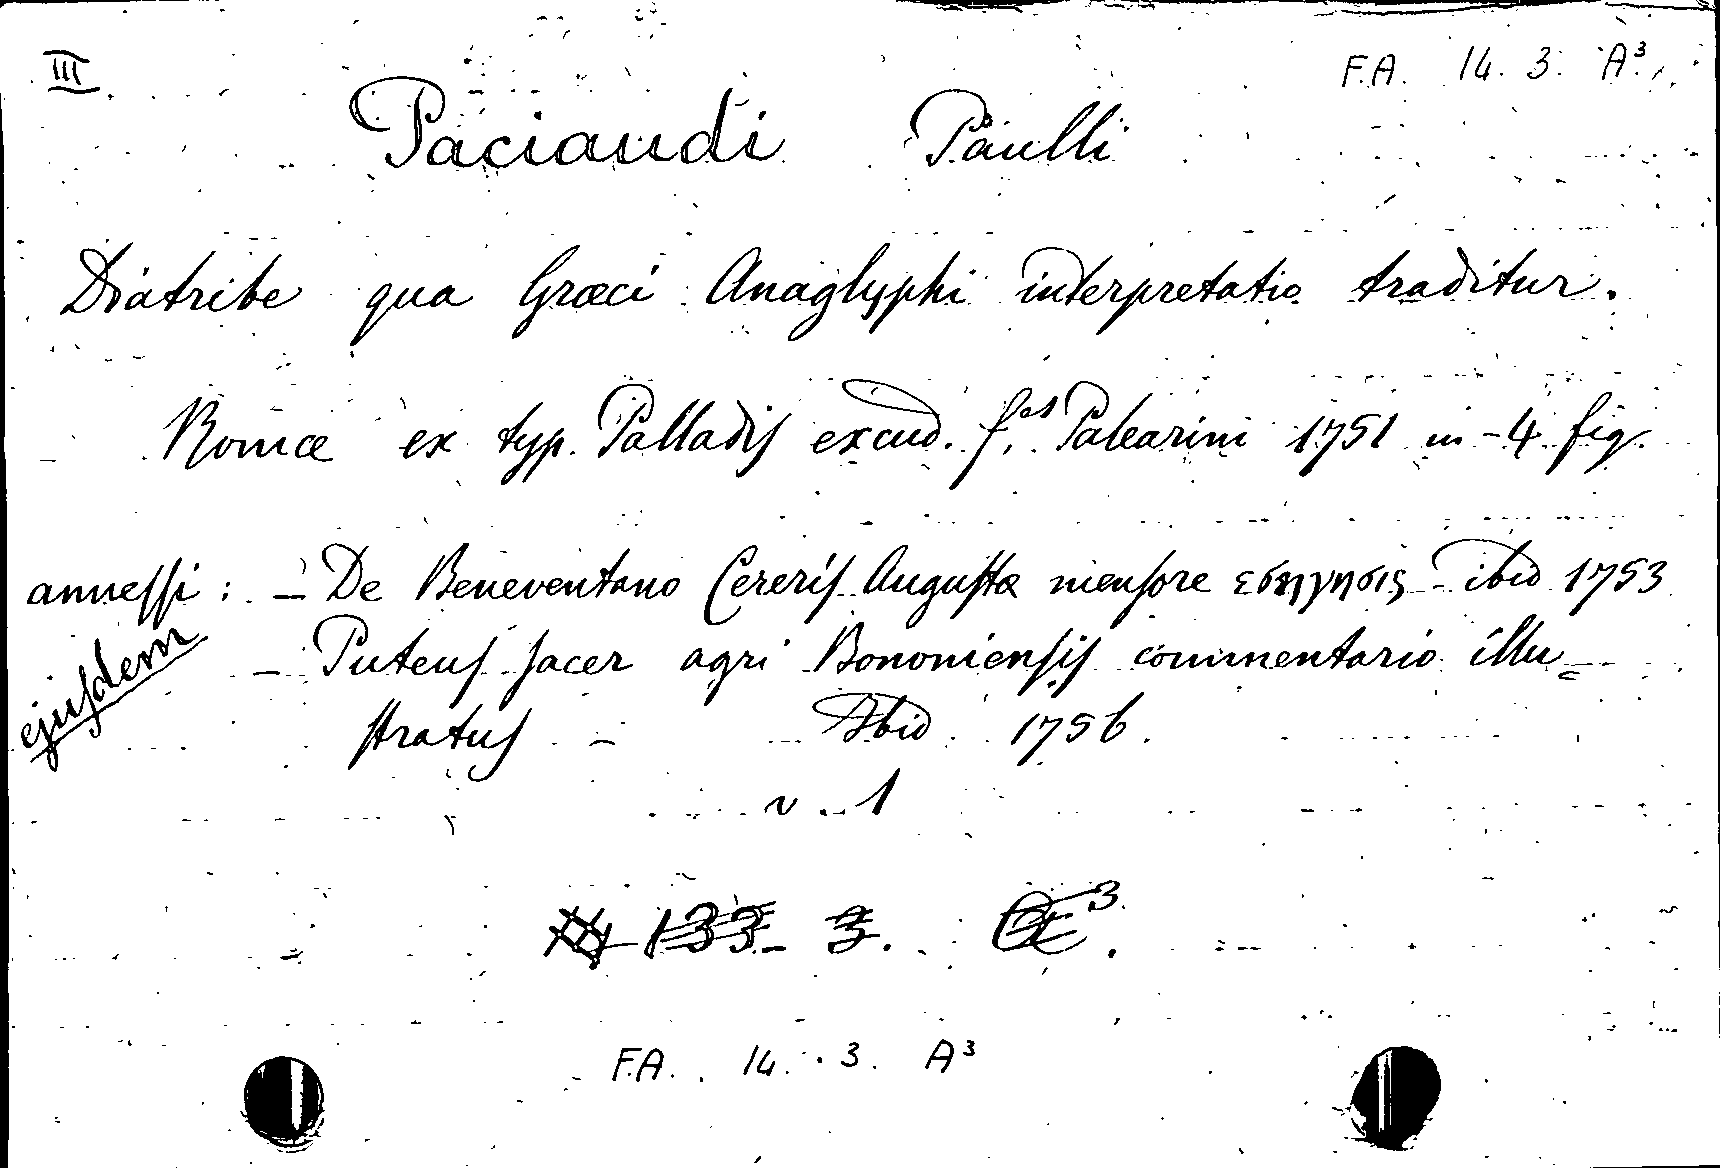 III
F.A. 14. 3. A³.
Paciaudi Paulli
Diatribe qua Græci Anaglyphi interpretatio traditur.
Romæ ex typ. Palladis excud. f.es Palearini 1751 in-4 fig.
annessi: - De Beneventano Cereris Augustæ mensore εσηγησις - ibid 1753
ejusdem
- Puteus sacer agri Bononiensis commentario illu=
stratus - Ibid 1756.
v. 1
133 - 3.
F.A. 14. 3. A³